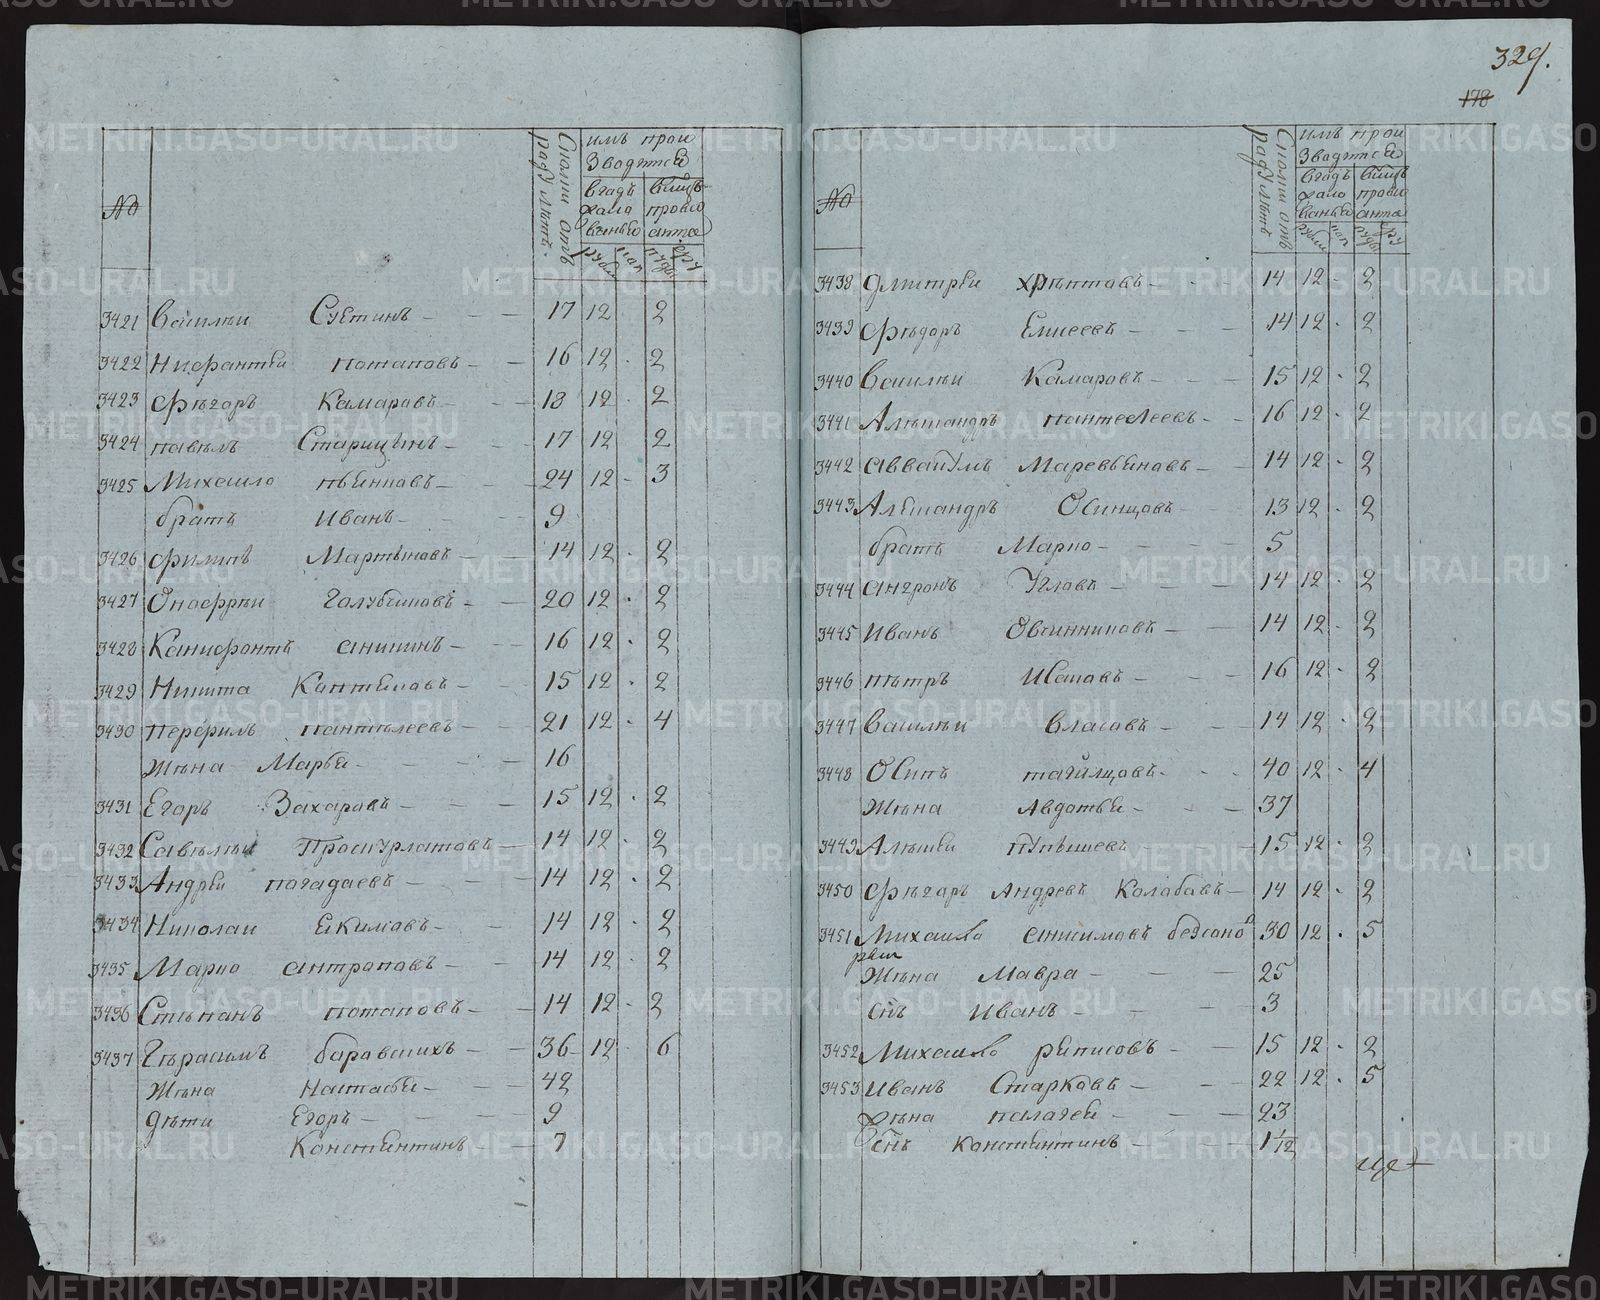 329.
178
№
Сколки отъ роду лѣтъ
имъ прои
зводится
вгодъ
жало
ванья
рубли
коп
пуды
фу
3421 Василеи Суетинъ 17 12 2
3422 Нисрантеи потаповъ 16 12 . 2
3423 Фѣдоръ Камаровъ 18 12 . 2
3424 павѣлъ Старицынъ 17 12 2
3425 Михаило пьянковъ 24 12 . 3
братъ Иванъ 9
3426 Филипъ Мартыновъ 14 12 . 2
3427 Онофреи Голубчиковъ 20 12 . 2
3428 Ксенофонтъ аникинъ 16 12 . 2
3429 Никита 15 12 . 2
3430 перфилъ пантелеевъ 21 12 . 4
Жена Марья 16
3431 Егоръ Захаровъ 15 12 . 2
3432 Савелеи 14 12 . 2
3433 Андреи погадаевъ 14 12 . 2
3434 Николаи Екимовъ 14 12 . 2
3435 Марко антроповъ 14 12 . 2
3436 Степанъ потаповъ 14 12 . 2
3437 Герасимъ боровскихъ 36 12 . 6
Жена Настасья 42
дети Егоръ 9
Константинъ 7
№
имъ прои
зводится
вгодъ
жало
ванья
рубли
коп
пуды
фу
3438 Дмитреи хрептовъ 14 12 . 2
3439 Фѣдоръ Елисеевъ 14 12 . 2
3440 Василеи Камаровъ 15 12 . 2
3441 Александръ пантелеевъ 16 12 . 2
3442 аввакумъ 14 12 . 2
3443 Александръ Осинцовъ 13 12 . 2
братъ Марко 5
3444 андронъ Угловъ 14 12 . 2
3445 Иванъ Овчинниковъ 14 12 . 2
3446 петръ Исаковъ 16 12 . 2
3447 Василеи Власовъ 14 12 . 2
3448 Осипъ тагилцовъ 40 12 . 4
Жена Авдотья 37
3449 Алексеи пупышевъ 15 12 . 2
3450 Фѣдоръ Андреевъ Колобовъ 14 12 . 2
3451 Михаило анисимовъ 30 12 . 5
Жена Мавра 25
снъ Иванъ 3
3452 Михаило 15 12 . 2
3453 Иванъ Старковъ 22 12 . 5
жена пелагея 23
снъ константинъ 1 1/12
METRIKI.GASO-URAL.RU